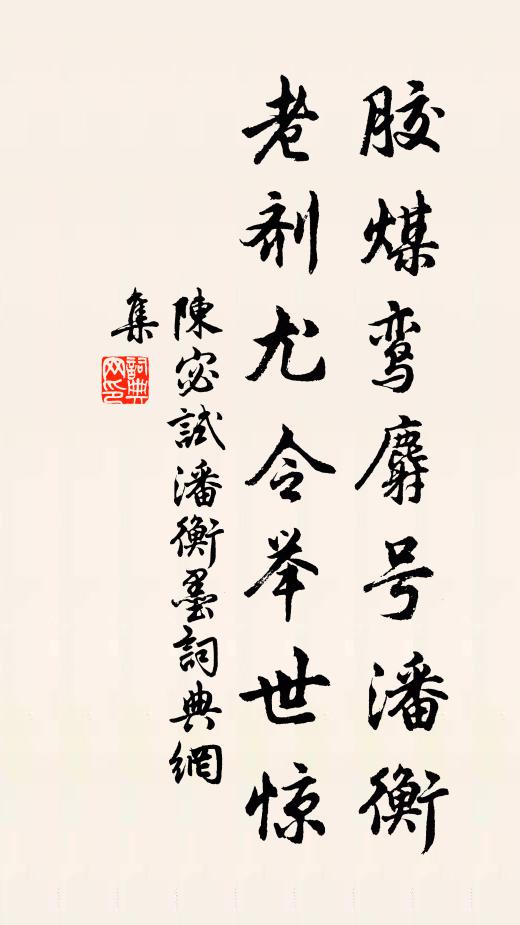 胶煤鸾麝号潘衡
老剂尤令举世惊
陳宓試潘衡墨詞典網
集
詞典网印